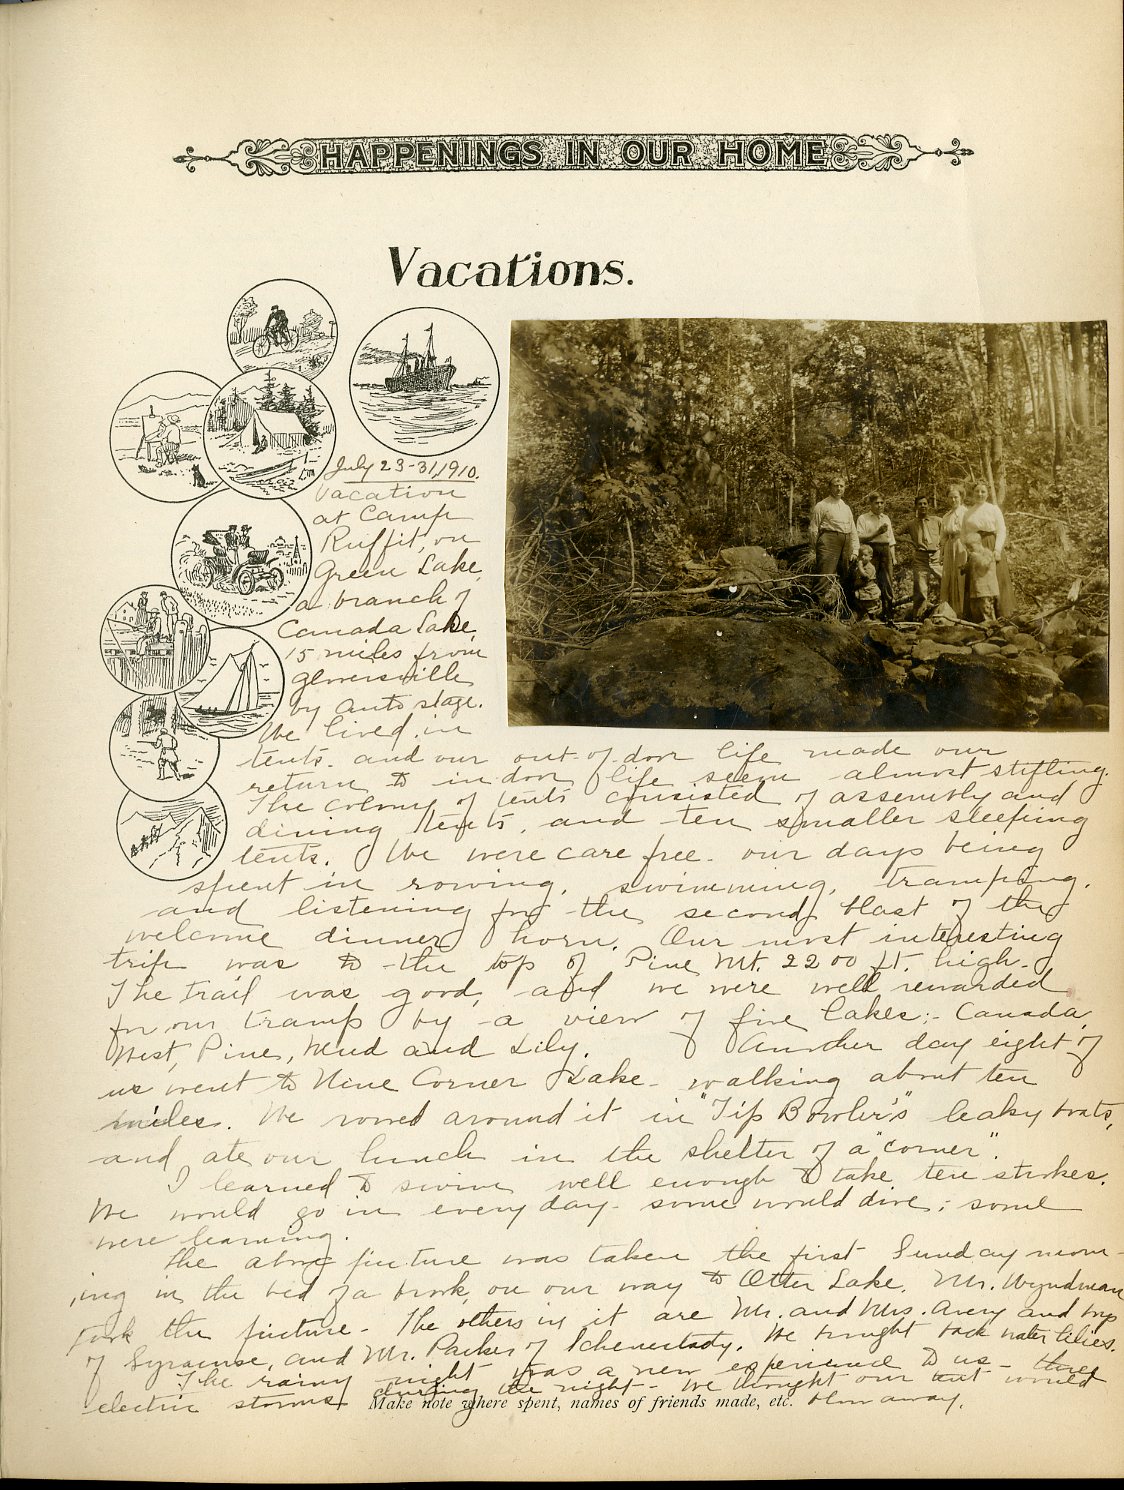 HAPPENINGS IN OUR HOME
Vacations.
July 23-31, 1910.
Vacation
at Camp
Ruffit, on
Green Lake,
a branch of
Canada Lake,
15 miles from
Gloversville
by auto stage.
We lived in
tents. and our out-of-door life made our
return to indoor life seem almost stifling.
The colony of tents consisted of assembly and
dining tents, and ten smaller sleeping
tents. We were care free - our days being
spent in rowing, swimming, tramping,
and listening for the second blast of the
welcome dinner horn. Our most interesting
trip was to the top of Pine Mt. 2200 ft. high.
The trail was good, and we were well rewarded
for our tramp by a view of five lakes:- Canada,
West, Pine, Mud and Lily. Another day eight of
us went to Nine Corner Lake - walking about ten
miles. We rowed around it in "Tip Bowler's" leaky boats,
and ate our lunch in the shelter of a "corner".
I learned to swim well enough to take ten strokes.
We would go in every day - some would dive; some
were learning.
The above picture was taken the first Sunday morn-
ing in the bed of a brook, on our way to Otter Lake. Mr. Wyndman
took the picture - The others in it are Mr. and Mrs. Avery and boys
of Syracuse, and Mr. Parker of Schenectady. We brought back water lilies.
The rainy night was a new experience to us - three
electric storms during the night - We thought our tent would
blow away.
Make note where spent, names of friends made, etc.